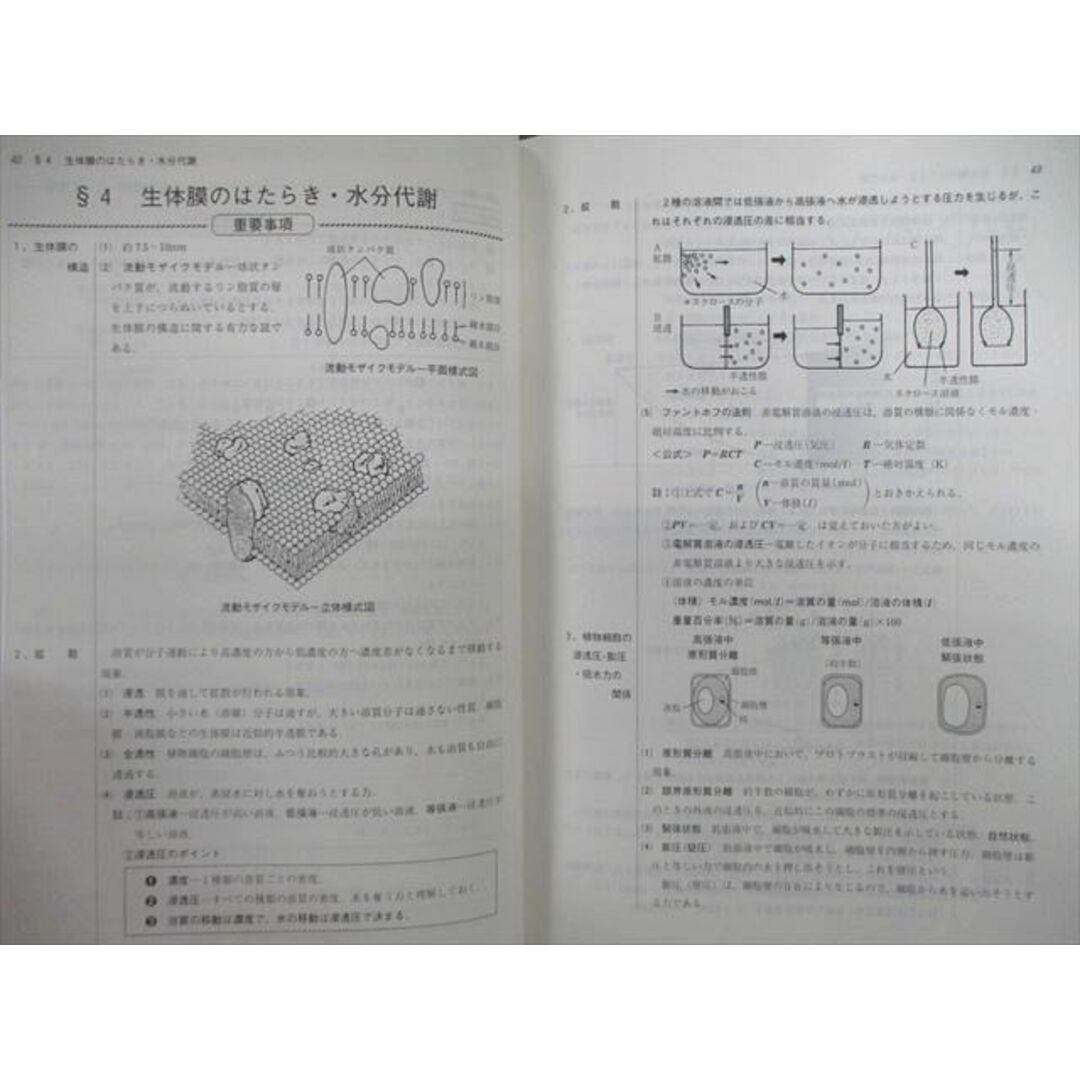 §4 生体膜のはたらき・水分代謝
§4 生体膜のはたらき・水分代謝
重要事項
1. 生体膜の構造
(1) 約7.5~10nm
(2) 流動モザイクモデルー球状タン
パク質が，流動するリン脂質の層
を上下につらぬいているとする，
生体膜の構造に関する有力な説で
ある．
球状タンパク質
リン脂質
疎水部分
親水部分
流動モザイクモデルー平面模式図
流動モザイクモデルー立体模式図
2. 拡 散
溶質が分子運動により高濃度の方から低濃度の方へ濃度差がなくなるまで移動する
現象．
(1) 浸透 膜を通して拡散が行われる現象．
(2) 半透性 小さい水（溶媒）分子は通すが，大きい溶質分子は通さない性質．
膜・液胞膜などの生体膜は近似的半透膜である．
(3) 全透性 植物細胞の細胞壁は，ふつう比較的大きな孔があり，水も溶質も自由に
通過する．
(4) 浸透圧 溶液が，蒸留水に対し水を奪おうとする力．
註：①高張液―浸透圧が高い溶液，低張液―浸透圧が低い溶液，等張液―浸透圧が
等しい溶液
②浸透圧のポイント
❶ 濃度―1種類の溶質ごとの密度．
❷ 浸透圧―すべての種類の溶質の密度．水を奪う力と理解しておく．
❸ 溶質の移動は濃度で，水の移動は浸透圧で決まる．
49
2. 拡 散
2種の溶液間では低張液から高張液へ水が浸透しようとする圧力を生じるが，こ
れはそれぞれの浸透圧の差に相当する．
A
拡散
水
*スクロースの分子
B
浸透
半透性膜
→水の移動がおこる
C
浸透圧
水
半透性膜
スクロース溶液
(5) ファントホフの法則 非電解質溶液の浸透圧は，溶質の種類に関係なくモル濃度・
絶対温度に比例する．
<公式> P=RCT
P―浸透圧(気圧) R―気体定数
C―モル濃度(mol/l) T―絶対温度 (K)
註：①上式で C=n/V (n―溶質の質量(mol) V―体積(l)) とおきかえられる．
②PV=一定，およびCV=一定 は覚えておいた方がよい．
③電解質溶液の浸透圧―電離したイオンが分子に相当するため，同じモル濃度の
非電解質溶液より大きな浸透圧を示す．
④溶液の濃度の単位
(体積) モル濃度(mol/l)=溶質の量(mol)/溶液の体積(l)
重量百分率(%)=溶質の量(g)/溶液の量(g)×100
3. 植物細胞の
浸透圧・膨圧
・吸水力の
関係
高張液中
原形質分離
等張液中
低張液中
緊張状態
細胞膜
液胞
細胞壁
核
(1) 原形質分離 高張液中において，プロトプラストが収縮して細胞壁から分離する
現象．
(2) 限界原形質分離 約半数の細胞が，わずかに原形質分離を起こしている状態．こ
のときの外液の浸透圧を，近似的にこの細胞の標準の浸透圧とする．
(3) 緊張状態 低張液中で，細胞が吸水して大きな膨圧を示している状態．自然状態．
(4) 膨圧(壁圧) 低張液中で細胞が吸水し，細胞壁を内側から押す圧力．細胞壁は膨
圧と等しい力で細胞内の水を押し出そうとし，これを壁圧という．
膨圧（壁圧）は，細胞壁の存在によりなりたつので，細胞から水を追い出そうとす
る力である．